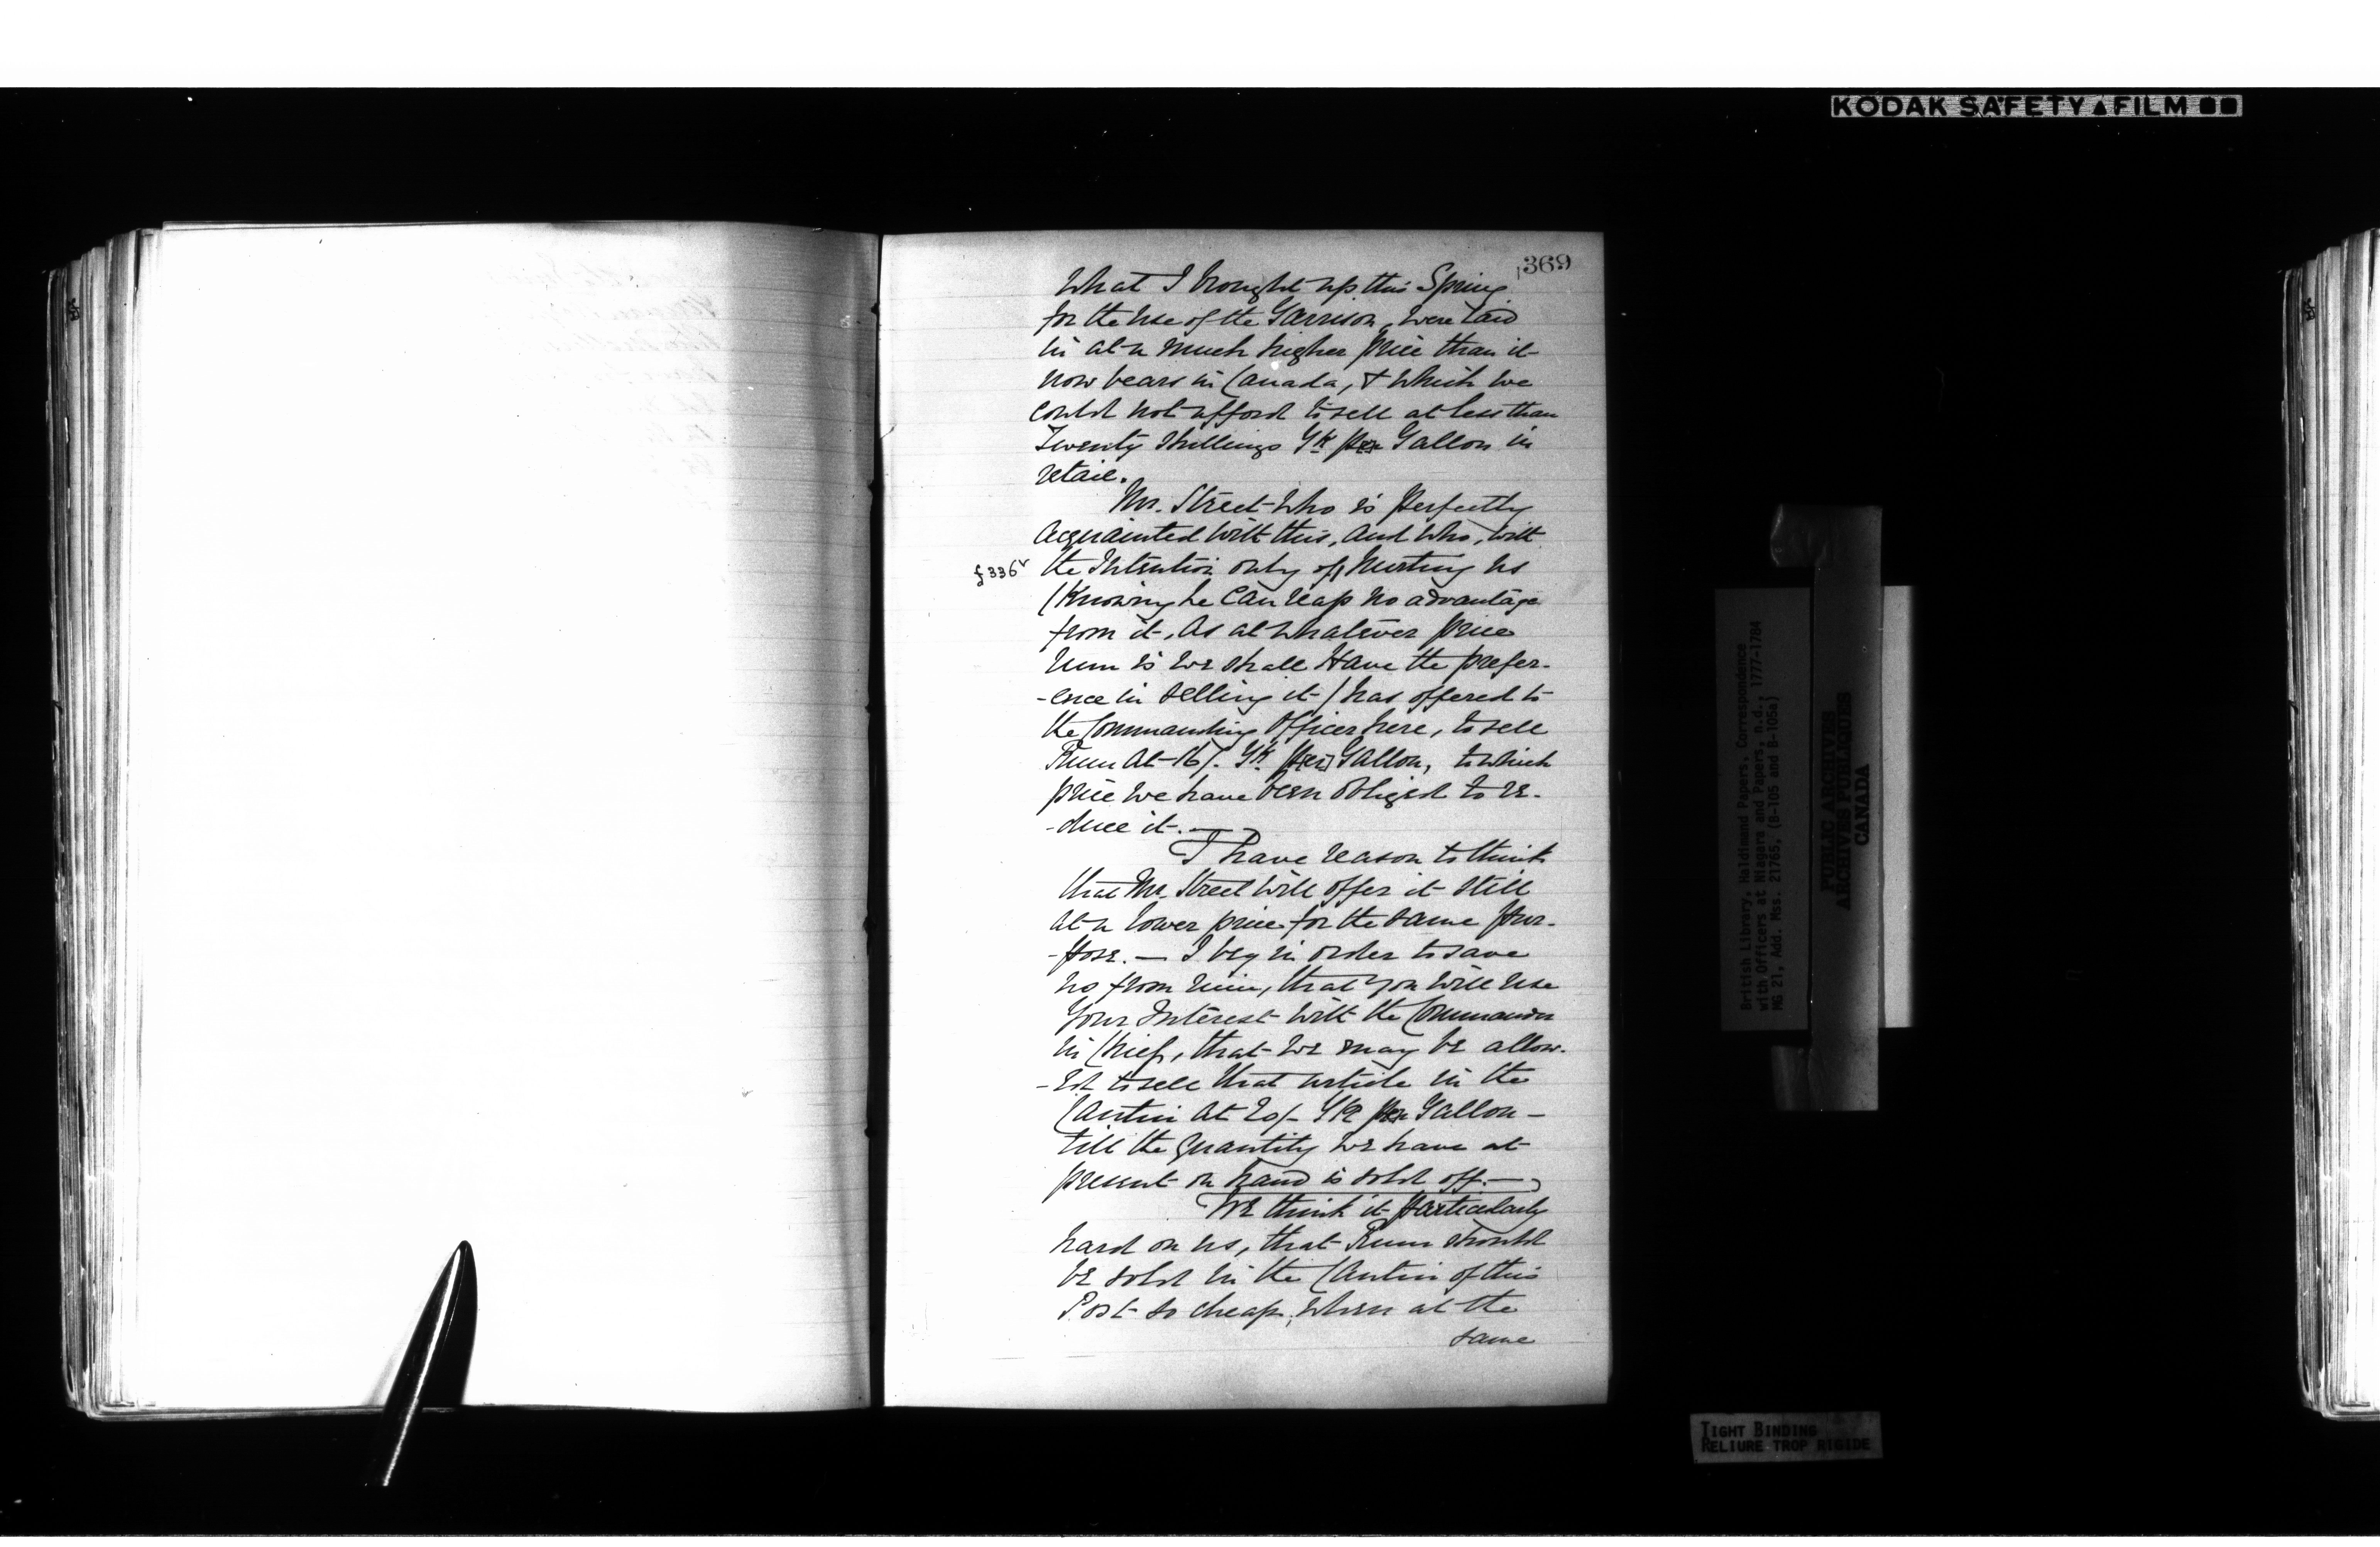 KODAK SAFETY FILM
369
What I brought up this Spring
for the Use of the Garrison, were laid
in at a much higher price than it
now bears in Canada, & which we
could not afford to sell at less than
Twenty Shillings Yk per Gallon in
retail.
Mr. Street who is perfectly
Acquainted with this, And who, with
f336v the Intention only of Hurting us
(Knowing he Can reap no advantage
from it, As at whatever price
rum is we shall Have the prefer-
-ence in selling it) has offered to
the Commanding Officer here, to sell
Rum At 16/. Yk. per Gallon, to which
price we have been obliged to re-
-duce it.—
I have reason to think
that Mr. Street will offer it still
at a lower price for the same pur-
-pose. — I beg in order to save
us from ruin, that you will use
Your Interest with the Commander
in Chief, that we may be allow-
-ed to sell that article in the
Cantin At 20/- Yk per Gallon —
till the Quantity we have at
present on hand is sold off.—
We think it particularly
hard on us, that Rum should
be sold in the Cantin of this
Post so cheap, when at the
same
British Library, Haldimand Papers, Correspondence
with Officers at Niagara and Papers, n.d., 1777-1784
MG 21, Add. Mss. 21765, (B-105 and B-105a)
PUBLIC ARCHIVES
ARCHIVES PUBLIQUES
CANADA
TIGHT BINDING
RELIURE TROP RIGIDE